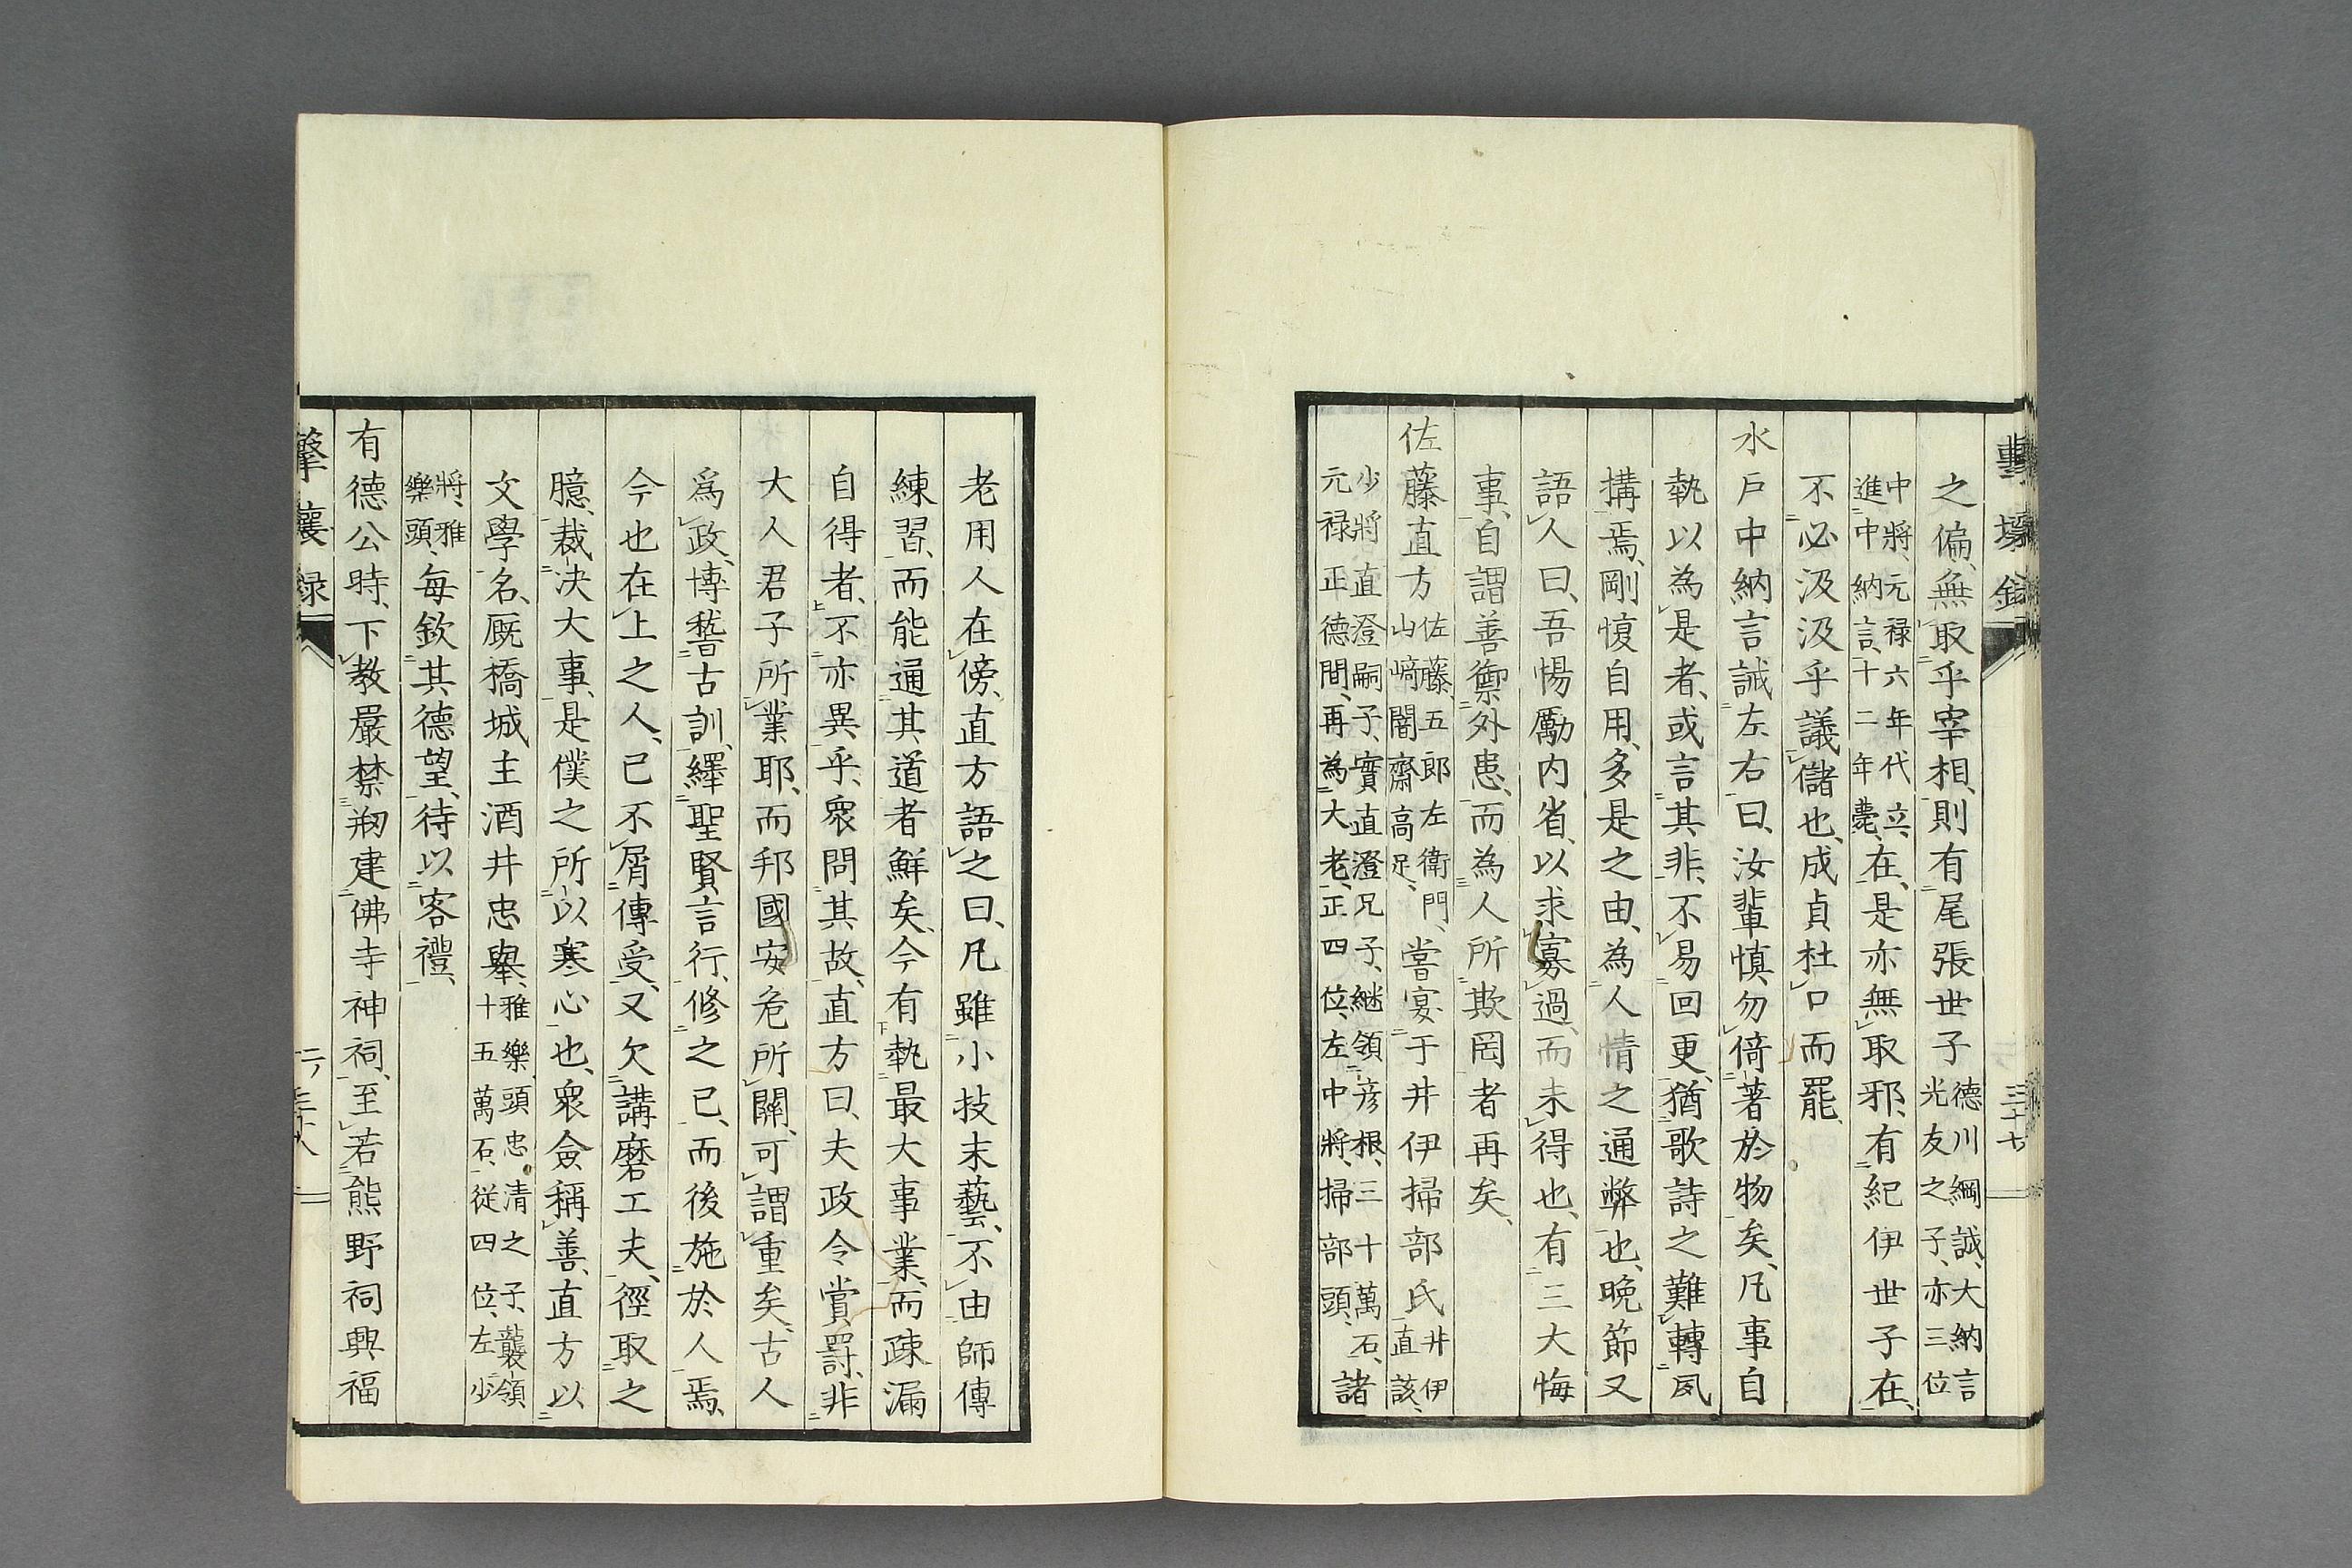 之偏、無取乎宰相、則有尾張世子德川綱誠、大納言光友之子、亦三位
中將、元禄六年代立、進中納言、十二年薨、在、是亦無取邪、有紀伊世子在、
不必汲汲乎議儲也、成貞杜口而罷、
水戸中納言誡左右曰、汝輩慎勿倚著於物矣、凡事自
執以為是者、或言其非、不易回更、猶歌詩之難轉夙
搆焉、剛愎自用、多是之由、為人情之通弊也、晩節又
語人曰、吾惕勵内省、以求寡過、而未得也、有三大悔
事、自謂善禦外患、而為人所欺罔者再矣、
佐藤直方佐藤五郎左衛門、山﨑闇齋高足、嘗宴于井伊掃部氏井伊直該、
少將直澄嗣子、實直澄兄子、継領彦根、三十萬石、元禄正德間、再為大老、正四位、左中將、掃部頭、諸
三十七
老用人在傍、直方語之曰、凡雖小技末藝、不由師傳
練習、而能通其道者鮮矣、今有執最大事業、而疎漏
自得者、不亦異乎、衆問其故、直方曰、夫政令賞罰、非
大人君子所業耶、而邦國安危所關、可謂重矣、古人
爲政、博稽古訓、繹聖賢言行、修之已、而後施於人焉、
今也在上之人、已不屑傳受、又欠講磨工夫、徑取之
臆、裁決大事、是僕之所以寒心也、衆僉稱善、直方以
文學名、厩橋城主酒井忠擧、雅樂頭忠清之子、襲領十五萬石、従四位、左少
將、雅樂頭、每欽其德望、待以客禮、
有德公時、下教嚴禁剏建佛寺神祠、至若熊野祠興福
擊壤録
三十八